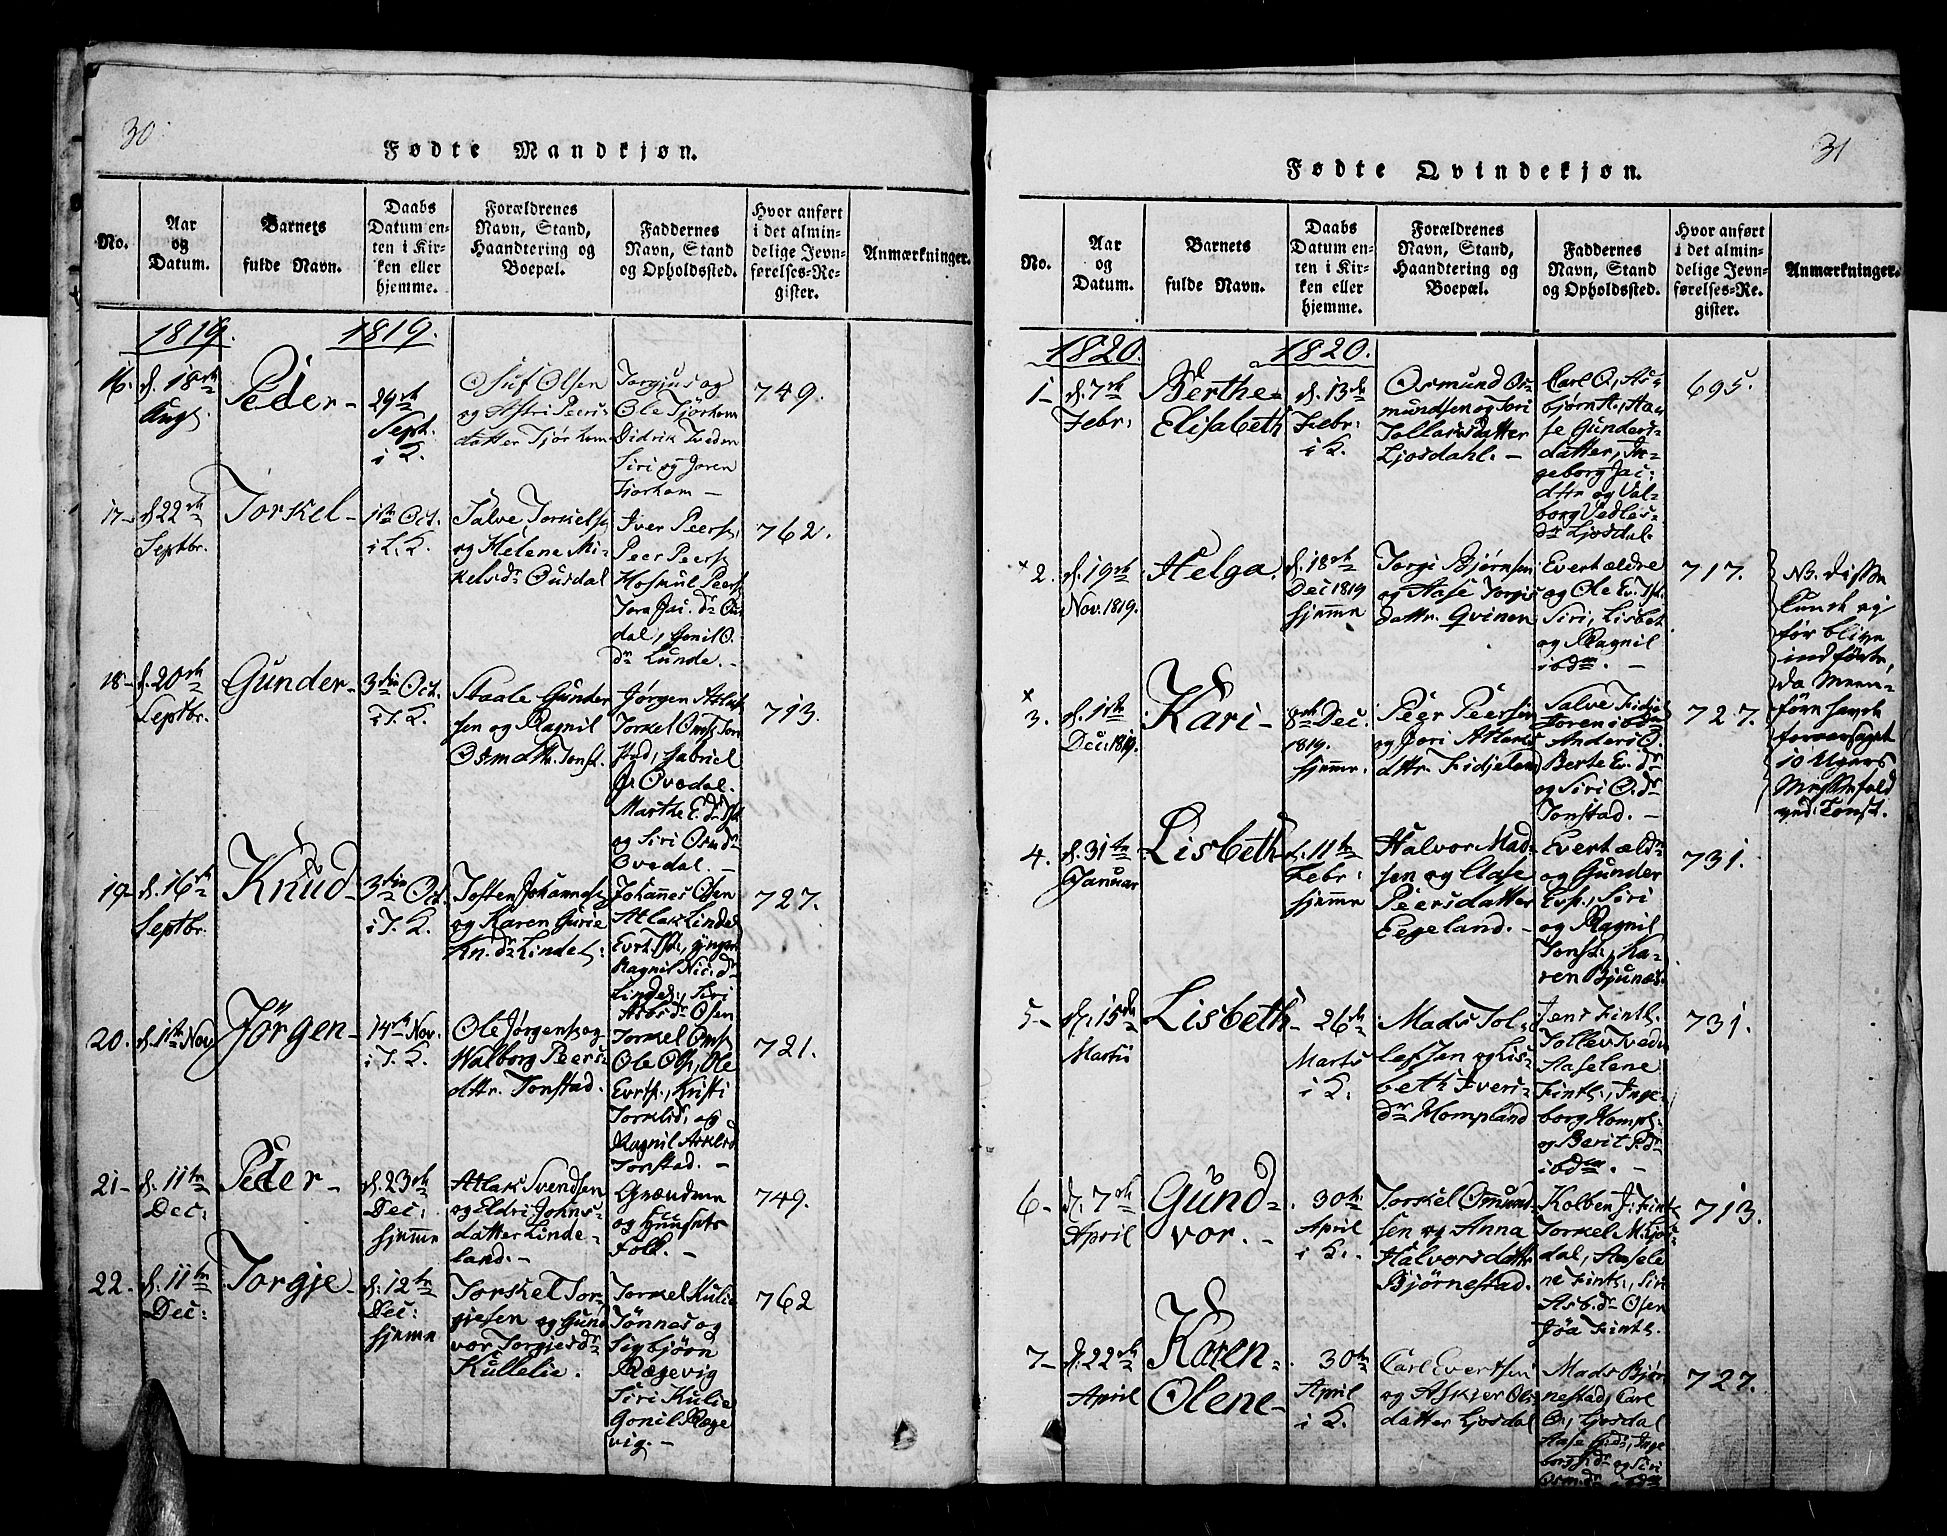 30
Fødte Mandkjøn.
No.
Aar
og
Datum.
Barnets
fulde Navn.
Daabs
Datum en-
ten i Kir-
ken eller
hjemme.
Forældrenes
Navn, Stand,
Haandtering og
Boepæl.
Faddernes
Navn, Stand
og Opholdssted.
Hvor anført
i det almin-
delige Jevn-
førelses-Re-
gister.
Anmærkninger.
1819.
1819.
16.
d. 18de
Aug
Peder-
29de
Sept.
i K.
Osuf Olsen
og Astri Peers
datter Tjørhom
Torgjus og
Ole Tjørhom
Didrik Tveden
Siri og Joren
Tjorhom -
749.
17-
d. 22de
Septbr.
Torkel-
1ste Oct.
i L. K.
Salve Torkels.
og Helene Mi-
kelsdr Ousdal
Iver Peers.
Peer Peers.
Tora Jac. dr Ou-
dal, Gonil O.
dr Lunde. -
762.
18-
d. 20de
Septbr.
Gunder-
3die Oct.
i T. K.
Staale Gunder
sen og Ragnil
Osm dtr. Tonst.
Jørgen Atlak
Torkel Oms. Ton
stad, Gabriel
J. Ovedal.
Marthe E. dr Tst.
og Siri Osm dr
Ovedal -
713.
19-
d. 16de
Septbr.
Knud-
3die Oct.
i T. K.
Tosten Johannes.
og Karen Gurie
Kn. dr Lindel:
Johannes Osen
Atlak Lindel
Ragnil Nic. dr
Lindel., Siri
Asbs dr Osen
727.
20.
d. 1ste Nov
Jörgen-
14de Nov.
i T. K.
Ole Jørgens. og
Walborg Peers
dttr. Tonstad.
Torkel Oms.
Ole Ols., Ole
Everts., Kristi
Torkelsd. og
Ragnil Atlksd
Tonstad. -
721.
21-
d. 11te
Dec:
Peder-
d. 23de
Dec:
hjemme
Atlak Svendsen
og Eldri Johns-
datter Linde-
land. -
Grændene
og Huusets
Folk. -
749.
22.
d. 11te
Dec:
Torgje-
d. 12te
Dec:
hjeme
Torkel Tor-
giesen og Gund
vor Torgiesdr
Kullelie.
Torkel Kulie
Tønnes og
Sigbjørn
Rægevig
Siri Kulie
Gonil Ræge
vig. -
762
31
Fødte Qvindekjøn.
No.
Aar
og
Datum.
Barnets
fulde Navn.
Daabs
Datum en-
ten i Kir-
ken eller
hjemme.
Forældrenes
Navn, Stand,
Haandtering og
Boepæl.
Faddernes
Navn, Stand
og Opholdssted.
Hvor anført
i det almin-
delige Jevn-
førelses-Re-
gister.
Anmærkninger.
1820.
1820.
1-
d. 7de
Febr:
Berthe
Elisabeth
d. 13de
Febr:
i K.
Osmund Os-
mundsen og Siri
Tollaksdatter
Ljosdahl. -
Carl O., As-
bjørn A., Aa-
se Gunders-
datter, In-
geborg Jac:
dttr og Val-
borg Vedles-
dr Ljosdal.
695.
×2.
d. 19de
Nov. 1819.
Helga.
d. 18de
Dec 1819
hjemme
Torgi Bjørnsen
og Aase Torgis
dattr. Qvinen
Evert ældre
og Ole Ev. Tst.
Siri, Lisbet
og Ragnil
ibdm. -
717.
NB. disse
kunde ej
før blive
indførte,
da Meen-
føre havde
foraarsaget
10 Ugers
Messefald
ved Tonst.
×
3.
d. 1ste
Dec. 1819.
Kari-
8de Dec.
1819.
hjemme.
Peer Peersen
og Jori Atlaks
dttr. Fidjeland
Salve Fidje
Joren ibdm
Anders O.
Berte Ev. dr
og Siri O. dr
Tonstad. -
727.
4.
d. 31te
Januar
Lisbeth
d. 11te
Febr:
hjemme
Halvor Mad
sen og Aase
Peersdatter
Eegeland. -
Evert ældre
og Gunder
Esp., Siri
og Ragnil
Tonst., Ka-
ren Bjunes.
731.
5-
d. 15de
Martii
Lisbeth-
26de
Marts
i K.
Mads Tol-
lefsen og Lis-
beth Ivers-
dr Hompland
Jens Fintl.
Tollev Tveden
Aaselene
Fintl., Inge-
borg Hompl.
og Berit P. dr
ibdm. -
731.
6-
d. 7de
April
Gund-
vor. -
30te
April
i K.
Torkel Omund
sen og Anna
Halvorsdattr
Bjørnestad.
Kolben J. Fintl.
Torkel M. Ljos-
dal, Aasele
ne Fintl., Siri
Asb. dr Osen
Jøa Fintl.
713.
7-
d. 22de
April
Karen-
Olene-
30te
April
i K.
Carl Evertsen
og Askier Ols
datter Ljosdal
Mads Bjør
nestad, Carl
O., Ljosdal
Aase Gds., Inge
727.